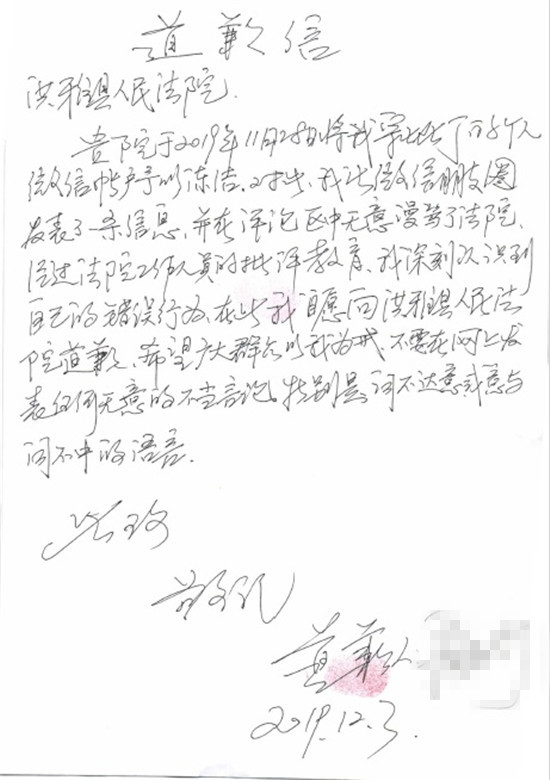 道歉信
洪雅县人民法院.
贵院于2019年11月28日将我宗地执了的个人
微信帐户予以冻结。对此，我从微信朋友圈
发表了一条信息，并在评论区中无意漫骂了法院，
经过法院工作人员的批评教育，我深刻认识到
自己的错误行为，在此我自愿向洪雅县人民法
院道歉，希望广大群众以我为戒，不要在网上发
表任何无意的不当言论。特别是词不达意或意与
词不中的语言.
此致
敬礼
道歉人
2019.12.3.